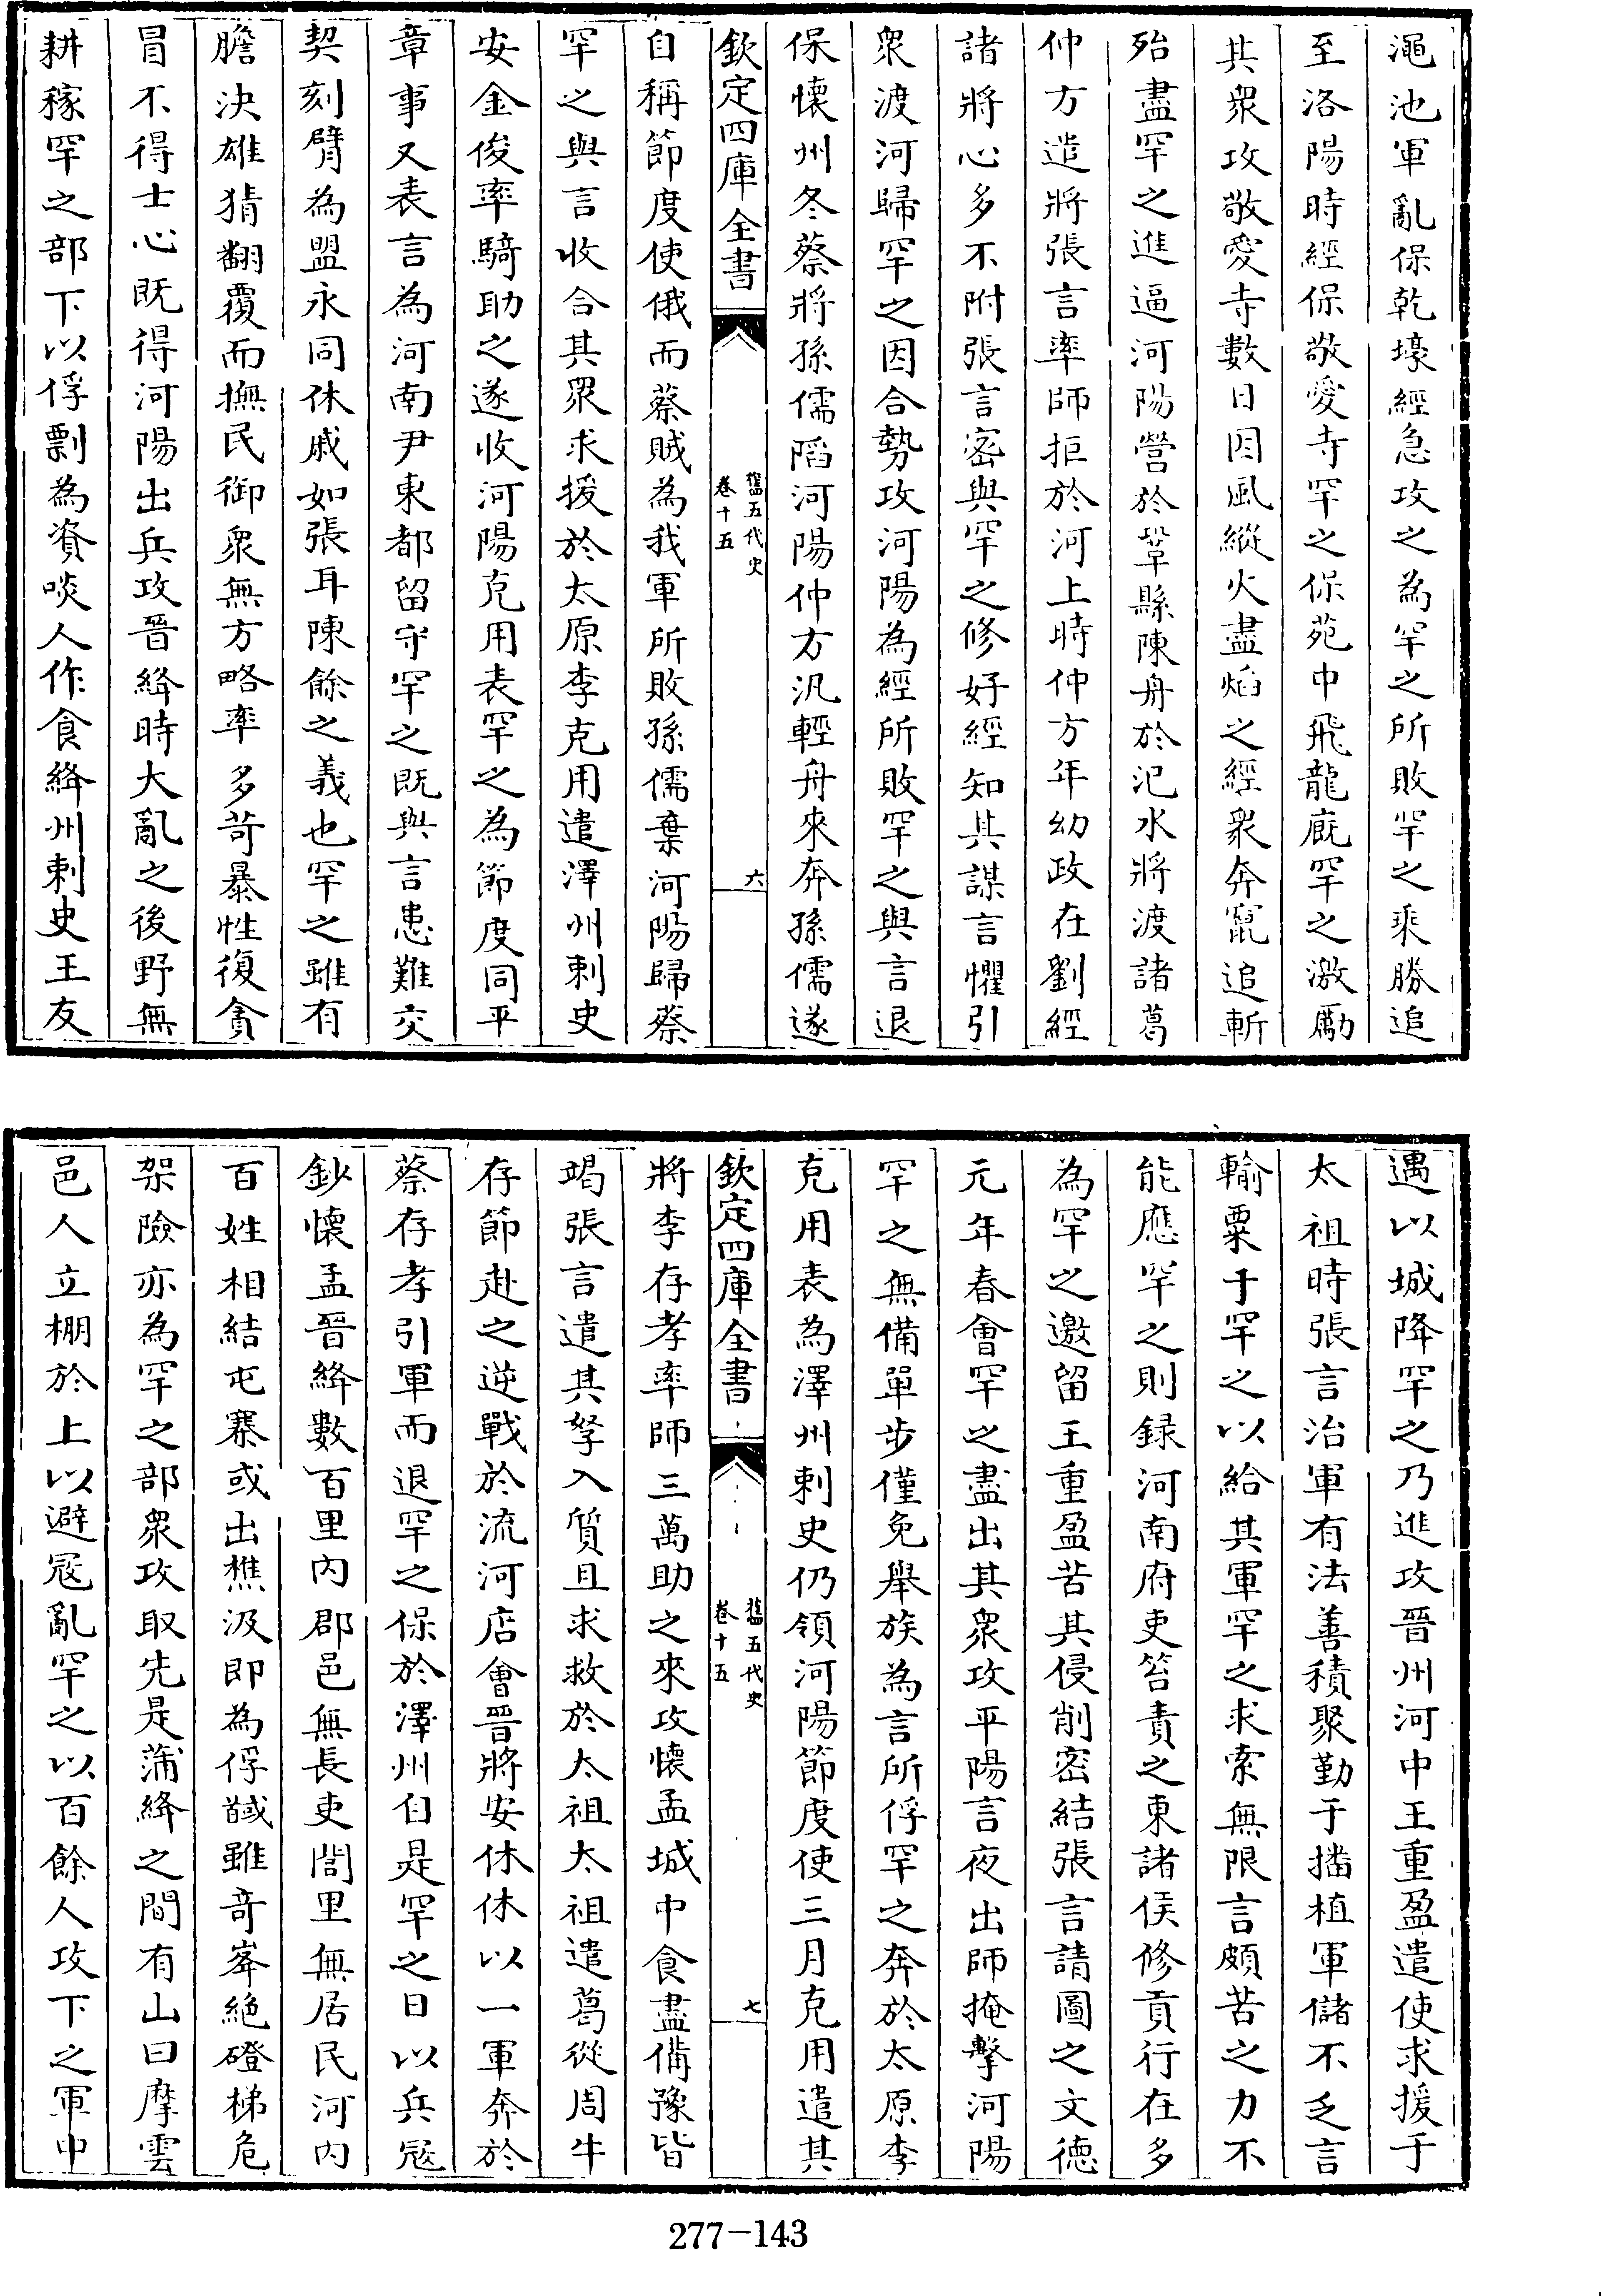 澠池軍亂保乾壕經急攻之為罕之所敗罕之乘勝追
至洛陽時經保敬愛寺罕之保苑中飛龍廐罕之激勵
其衆攻敬愛寺數日因風縱火盡焰之經衆奔竄追斬
殆盡罕之進逼河陽營於鞏縣陳舟於氾水將渡諸葛
仲方遣將張言率師拒於河上時仲方年幼政在劉經
諸將心多不附張言密與罕之修好經知其謀言懼引
衆渡河歸罕之因合勢攻河陽為經所敗罕之與言退
保懷州冬蔡將孫儒陷河陽仲方汎輕舟來奔孫儒遂
欽定四庫全書
舊五代史
卷十五
六
自稱節度使俄而蔡賊為我軍所敗孫儒棄河陽歸蔡
罕之與言收合其衆求援於太原李克用遣澤州刺史
安金俊率騎助之遂收河陽克用表罕之為節度同平
章事又表言為河南尹東都留守罕之既與言患難交
契刻臂為盟永同休戚如張耳陳餘之義也罕之雖有
膽決雄猜翻覆而撫民御衆無方略率多苛暴性復貪
冒不得士心既得河陽出兵攻晉絳時大亂之後野無
耕稼罕之部下以俘剽為資啖人作食絳州刺史王友
遇以城降罕之乃進攻晉州河中王重盈遣使求援于
太祖時張言治軍有法善積聚勤于播植軍儲不乏言
輸粟于罕之以給其軍罕之求索無限言頗苦之力不
能應罕之則録河南府吏笞責之東諸侯修貢行在多
為罕之邀留王重盈苦其侵削密結張言請圖之文德
元年春會罕之盡出其衆攻平陽言夜出師掩擊河陽
罕之無備單步僅免舉族為言所俘罕之奔於太原李
克用表為澤州刺史仍領河陽節度使三月克用遣其
欽定四庫全書
舊五代史
卷十五
七
將李存孝率師三萬助之來攻懷孟城中食盡備豫皆
竭張言遣其孥入質且求救於太祖太祖遣葛從周牛
存節赴之逆戰於流河店會晉將安休休以一軍奔於
蔡存孝引軍而退罕之保於澤州自是罕之日以兵寇
鈔懷孟晉絳數百里內郡邑無長吏閭里無居民河內
百姓相結屯寨或出樵汲即為俘馘雖竒峯絶磴梯危
架險亦為罕之部衆攻取先是蒲絳之間有山曰摩雲
邑人立棚於上以避寇亂罕之以百餘人攻下之軍中
277-143